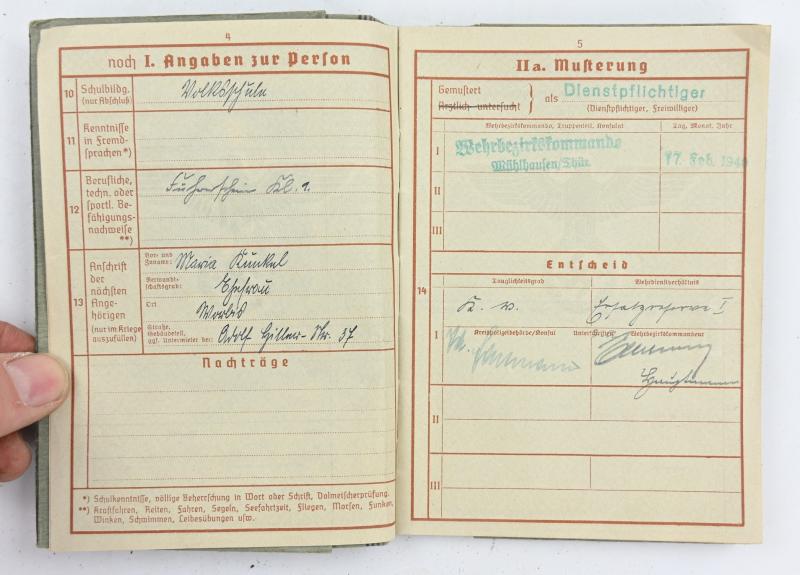 4
noch I. Angaben zur Person
10 Schulbildg. (nur Abschluß) Volksschule
11 Kenntnisse in Fremd-
sprachen *)
12 Berufliche,
techn. oder
sportl. Be-
fähigungs-
nachweise
**)
Führerschein Kl. 1.
13 Anschrift
der
nächsten
Ange-
hörigen
(nur im Kriege
auszufüllen)
Vor- und
Zuname: Maria Kunkel
Verwandt-
schaftsgrad: Ehefrau
Ort Worbis
Straße,
Gebäudeteil,
ggf. Untermieter bei: Adolf Hitler-Str. 37
Nachträge
*) Schulkenntnisse, völlige Beherrschung in Wort oder Schrift, Dolmetscherprüfung.
**) Kraftfahren, Reiten, Fahren, Segeln, Seefahrtzeit, Fliegen, Morsen, Funken,
Winken, Schwimmen, Leibesübungen usw.
5
II a. Musterung
Gemustert
Ärztlich untersucht
als Dienstpflichtiger
(Dienstpflichtiger, Freiwilliger)
Wehrbezirkskommando, Truppenteil, Konsulat
Tag, Monat, Jahr
I Wehrbezirkskommando
Mühlhausen/Thür.
17. Feb. 1940
II
III
Entscheid
14
Tauglichkeitsgrad
Wehrdienstverhältnis
K. v.
Ersatzreserve I
I
Kreispolizeibehörde/Konsul
Unterschrift
Wehrbezirkskommandeur
Hauptmann
II
III